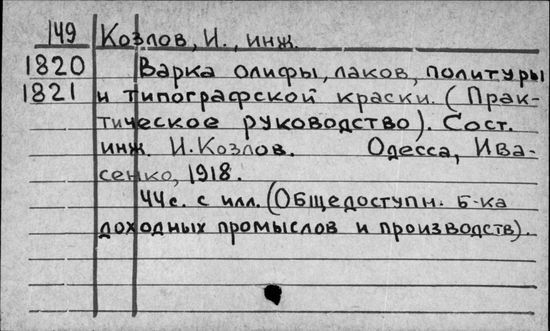 149 Козлов, И., инж.
1820 Варка олифы, лаков, политуры
1821 и типографской краски. (Прак-
тическое руководство). Сост.
инж. И. Козлов. Одесса, Ива-
сенко, 1918.
44 с. с илл. (Общедоступн. б-ка
доходных промыслов и производств).